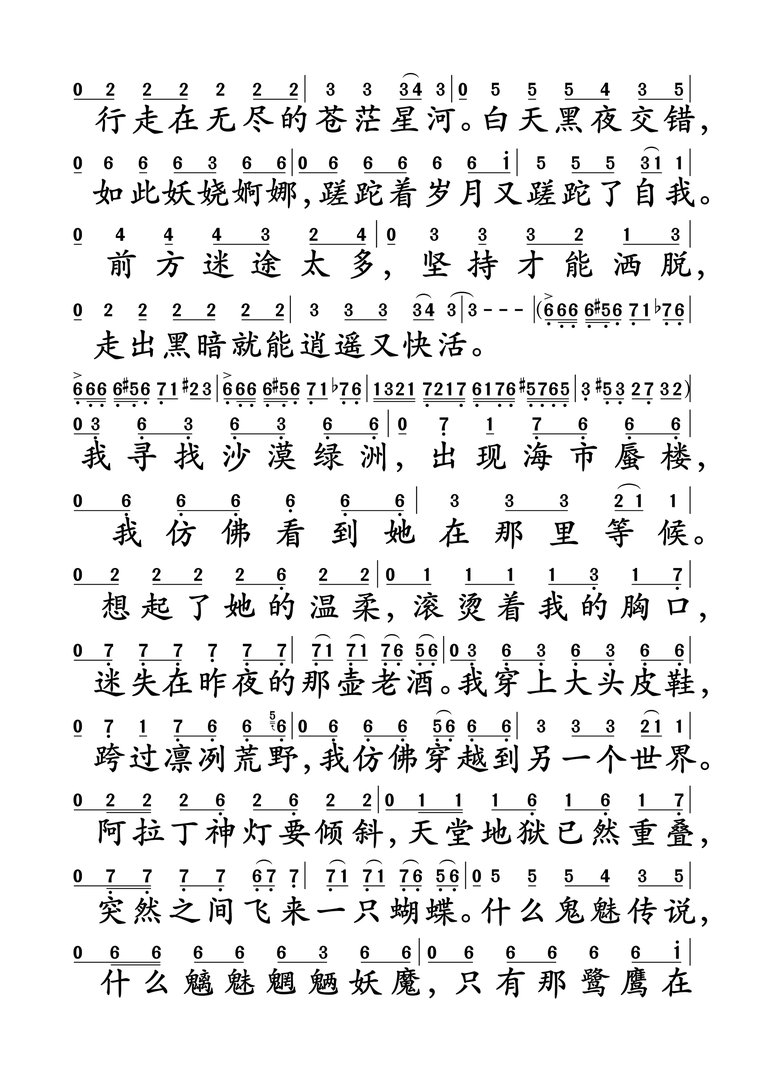 0 2 2 2 2 2 2| 3 3 34 3|0 5 5 5 4 3 5|
行走在无尽的苍茫星河。白天黑夜交错,
0 6 6 6 3 6 6|0 6 6 6 6 6 i| 5 5 5 31 1|
如此妖娆婀娜,蹉跎着岁月又蹉跎了自我。
0 4 4 4 3 2 4|0 3 3 3 2 1 3|
前方迷途太多,坚持才能洒脱,
0 2 2 2 2 2 2| 3 3 3 34 3|3 - - -|(666 6#56 71 b76|
走出黑暗就能逍遥又快活。
666 6#56 71 #23|666 6#56 71 b76|1321 7217 6176 #5765|3 #53 27 32)
0 3 6 3 6 3 6 6|0 7 1 7 6 6 6|
我寻找沙漠绿洲,出现海市蜃楼,
0 6 6 6 6 6 6| 3 3 3 21 1|
我仿佛看到她在那里等候。
0 2 2 2 2 6 2 2|0 1 1 1 1 3 1 7|
想起了她的温柔,滚烫着我的胸口,
0 7 7 7 7 7 7|71 71 76 56|0 3 6 3 6 3 6 6|
迷失在昨夜的那壶老酒。我穿上大头皮鞋,
0 7 1 7 6 6 56|0 6 6 6 56 6 6| 3 3 3 21 1|
跨过凛冽荒野,我仿佛穿越到另一个世界。
0 2 2 2 6 2 6 2 2|0 1 1 1 6 1 6 1 7|
阿拉丁神灯要倾斜,天堂地狱已然重叠,
0 7 7 7 7 67 7|71 71 76 56|0 5 5 5 4 3 5|
突然之间飞来一只蝴蝶。什么鬼魅传说,
0 6 6 6 6 6 3 6 6|0 6 6 6 6 6 i|
什么魑魅魍魉妖魔,只有那鹭鹰在